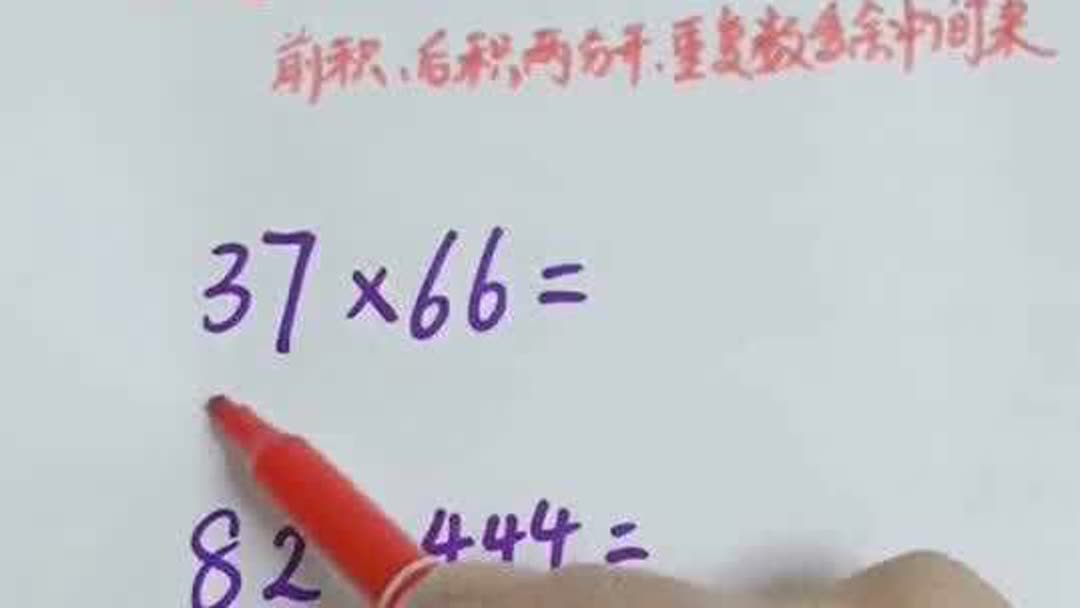 前积、后积,两分开.重复数多余中间来
37×66=
82 444=